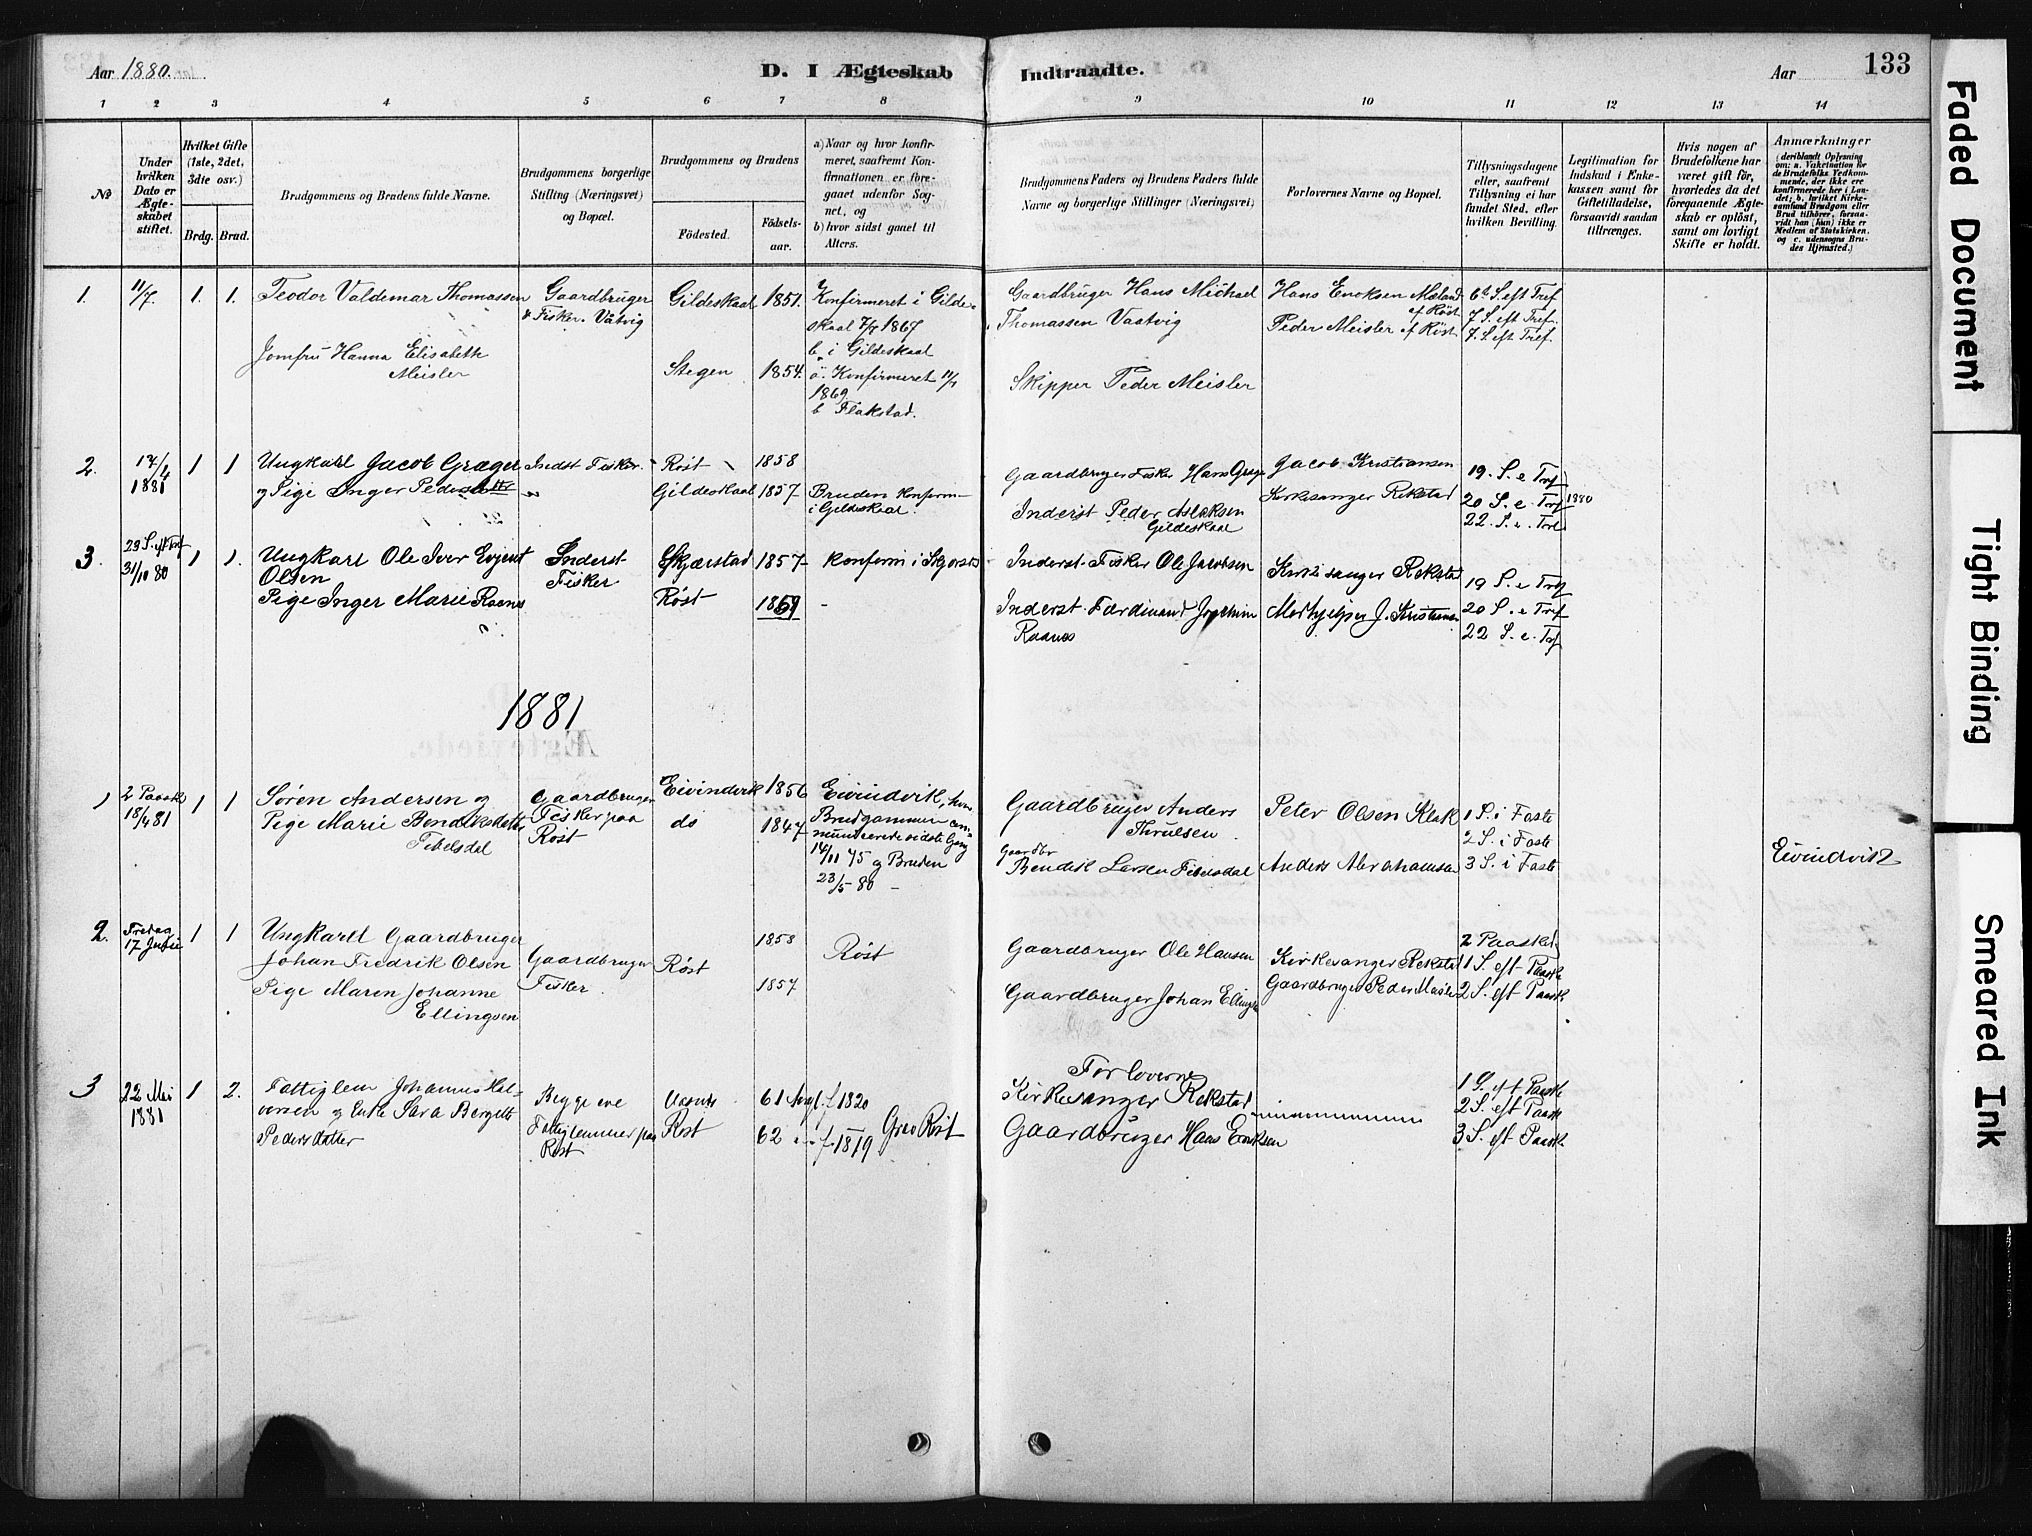 Aar 1880.
D. I Ægteskab Indtraadte.
Aar
133
1 2 3 4 5 6 7 8 9 10 11 12 13 14
No
Under hvilken Dato er Ægteskabet stiftet.
Hvilket Gifte (1ste, 2det, 3dte osv.)
Brdg. Brud.
Brudgommens og Brudens fulde Navne.
Brudgommens borgerlige Stilling (Næringsvei) og Bopæl.
Brudgommens og Brudens
Fødested.
Fødselsaar.
a) Naar og hvor konfirmeret, saafremt Konfirmationen er foregaaet udenfor Sognet, og
b) hvor sidst gaaet til Alters.
Brudgommens Faders og Brudens Faders fulde Navne og borgerlige Stillinger (Næringsvei)
Forlovernes Navne og Bopæl.
Tillysningsdagene eller, saafremt Tillysning ei har fundet Sted, efter hvilken Bevilling.
Legitimation for Indskud i Enkekassen samt for Giftetilladelse, forsaavidt saadan tiltrænges.
Hvis nogen af Brudefolkene har været gift før, hvorledes da det foregaaende Ægteskab er opløst, samt om lovligt Skifte er holdt.
Anmærkninger
(deriblandt Oplysning om: a. Vakcination for de Brudefolks Vedkommende, der ikke ere konfirmerede her i Landet; b. hvilket Kirkesamfund Brudgom eller Brud tilhører, forsaavidt han (hun) ikke er Medlem af Statskirken, og c. udensogns Brudes Hjemsted.)
1. 11/7. 1. 1.
Teodor Valdemar Thomassen
Jomfru Hanna Elisabeth
Meisler
Gaardbruger
& Fisker. Vatvig
Gildeskaal 1851.
Stegen 1854.
Konfirmeret i Gilde-
skaal 7/7 1867
b. i Gildeskaal
a. Konfirmeret 11/7
1869
b Flakstad.
Gaardbruger Hans Michael
Thomassen Vaatvig
Skipper Peder Meisler
Hans Enoksen Mæland
af Röst
Peder Meisler af Röst
6te S. eft Tref
7 S. eft Tref.
7. S eft Tref.
2. 1881 1 1
Ungkarl Jacob Græger
og Pige Inger Pedersdatter
Indst Fisker.
Röst 1858
Gildeskaal 1857
Bruden konferm
i Gildeskaal.
Gaardbruger Fisker Hans Græger
Inderst Peder Aslaksen
Gildeskaal
Jacob Kristiansen
Kirkesanger Rekstad
19. S. e Tref
20 S. e. Tref 1880
22. S. e. Tref
3. 23 S. eft Tref
31/10 80 1 1.
Ungkarl Ole Iver Evjent
Olsen
Pige Inger Marie Raanes
Inderst
Fisker
Skjærstad 1857
Röst 1859
konferm i Skjerstad
Inderst. Fisker Ole Jacobsen
Inderst. Færdinand Joachim
Raanes
Kirkesanger Rekstad
Medhjelper J. Kristiansen
19 S. e Tref
20 S. e Tref
22 S. e. Tref
1881
1 2 Paaske
18/4 81 1 1
Søren Andersen og
Pige Marie Bendiksdatter
Gaardbruger
Fisker paa
Röst
Eivindvik 1856
do 1847
Eivindvik,
Brudgommen com-
municerede sidste Gang
14/11 75 og Bruden
23/5 80 -
Gaardbruger Anders
Thruelsen
Gaardbr
Bendik Larsen
Peter Olsen Klak
Anders Abrahamsen
1 S. i Faste
2 S. i Faste
3 S. i Faste
Eivindvik
2. Fredag
17 Junie 1 1
Ungkarll Gaardbruger
Johan Fredrik Olsen
Pige Maren Johanne
Ellingsen
Gaardbruger
Fisker
Röst
1858
1857
Röst
Gaardbruger Ole Hansen
Gaardbruger Johan Ellingsen
Kirkesanger Rekstad
Gaardbruger Peder Meisler
2 Paasked
1 S. eft Paaske
2 S. eft Paaske
3 22 Mai
1881 1 2.
Fattiglem Johannes Hal-
vorsen og Enke Sara Bergette
Pedersdatter
Begge ere
Fattiglemmer paa
Röst
Röst
61 f. 1820
62 f. 1819
Röst
Forloverne
Kirkesanger Rekstad
Gaardbruger Hans Enoksen
1 S. eft Paaske
2 S. eft Paaske
3 S. eft Paaske
Faded Document
Tight Binding
Smeared Ink